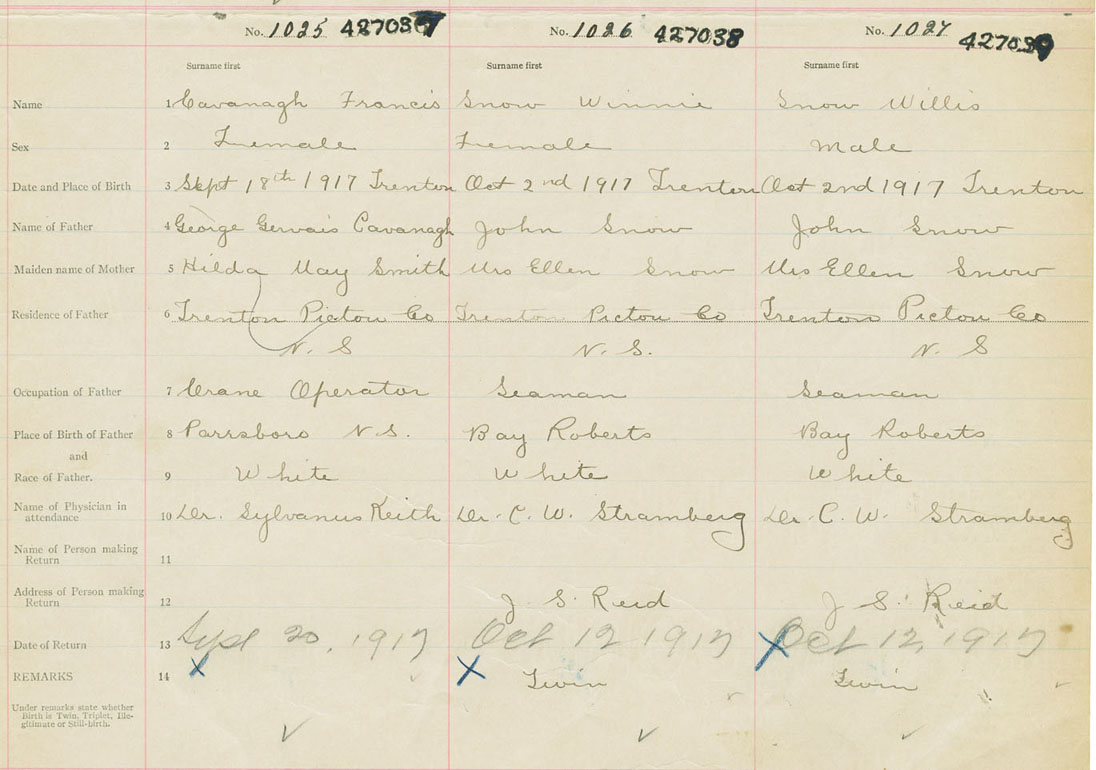 No. 1025 427037 No. 1026 427038 No. 1027 427039
Surname first Surname first Surname first
Name 1 Cavanagh Francis Snow Winnie Snow Willis
Sex 2 Female Female Male
Date and Place of Birth 3 Sept 18th 1917 Trenton Oct 2nd 1917 Trenton Oct 2nd 1917 Trenton
Name of Father 4 George Gervais Cavanagh John Snow John Snow
Maiden name of Mother 5 Hilda May Smith Mrs Ellen Snow Mrs Ellen Snow
Residence of Father 6 Trenton Pictou Co Trenton Pictou Co Trenton Pictou Co
N. S N. S. N. S
Occupation of Father 7 Crane Operator Seaman Seaman
Place of Birth of Father 8 Parrsboro N.S. Bay Roberts Bay Roberts
and
Race of Father. 9 White White White
Name of Physician in
attendance 10 Dr. Sylvanus Keith Dr. C. W. Stramberg Dr. C. W. Stramberg
Name of Person making
Return 11
Address of Person making
Return 12 J S. Reid J S. Reid
Date of Return 13 Sept 20, 1917 Oct 12 1917 Oct 12, 1917
REMARKS 14 x x Twin x Twin
Under remarks state whether
Birth is Twin, Triplet, Ille-
gitimate or Still-birth.